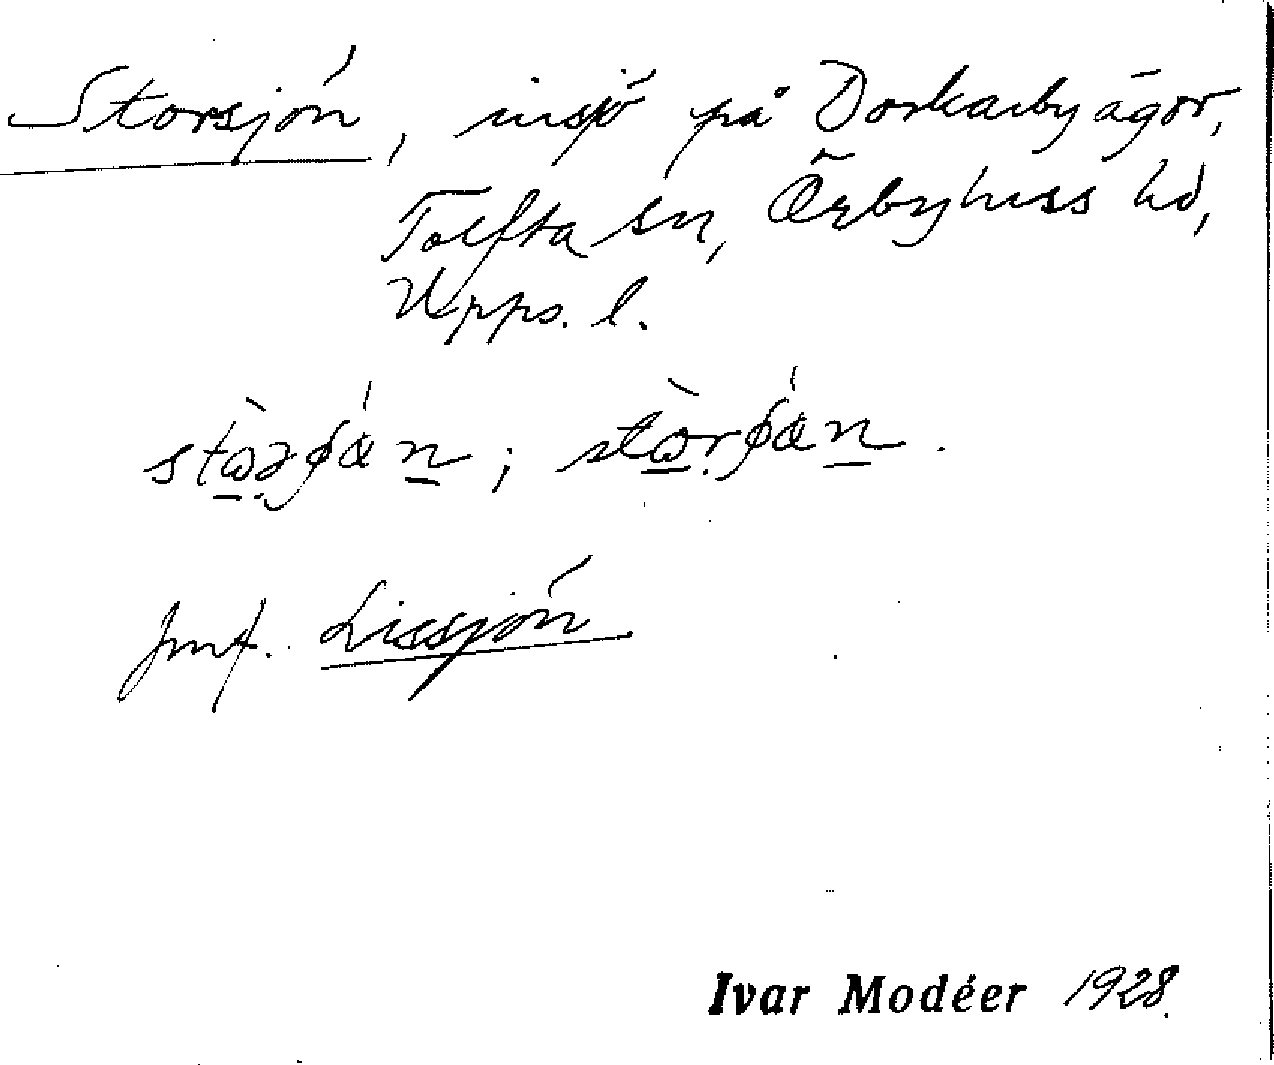 Storsjön, insjö på Dorkarby ägor,
Tolfta sn, Örbyhuss hd,
Upps. l.
Jmf. Lissjön
Ivar Modéer 1928.